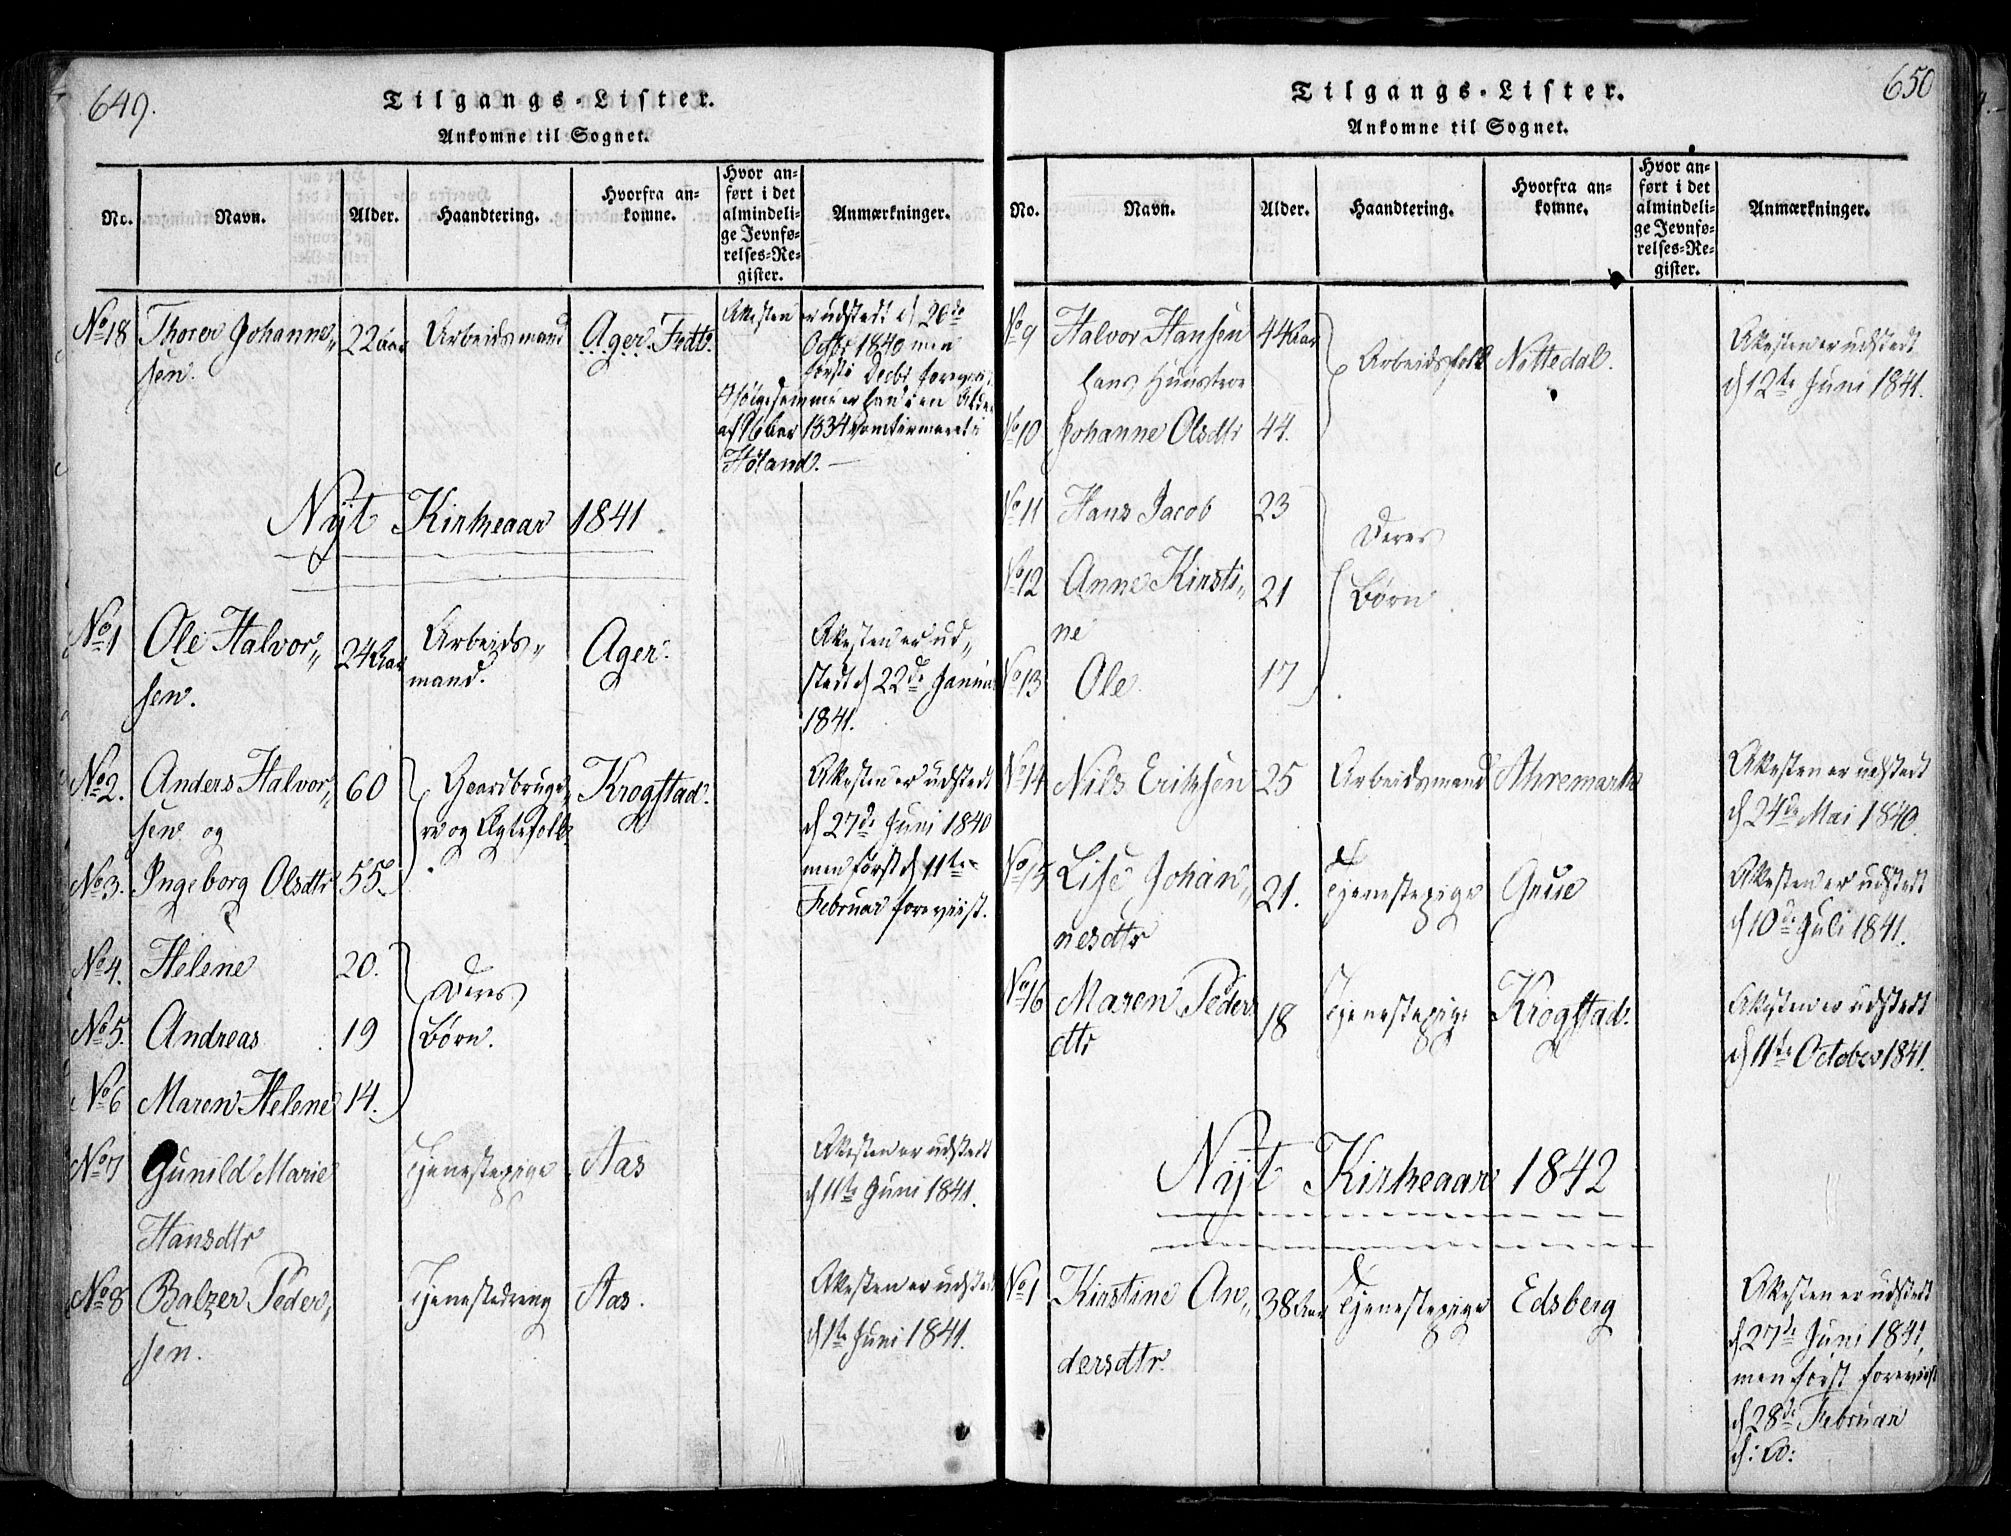 649.
Tilgangs-Lister.
Ankomne til Sognet.
No. Navn. Alder. Haandtering. Hvorfra an-
komne. Hvor an-
ført i det
almindeli-
ge Jevnfø-
relses-Re-
gister. Anmærkninger.
No 18 Thorer Johanne„ 22 Aar Arbeidsmand Ager. Attesten er udstedt d 20de
sen. Octbr 1840 men
først i Decbr
er han i en Alder
af 16 Aar 1834 Confirmeret i
Høland.
Nyt Kirkeaar 1841
No 1 Ole Halvor„ 24 Aar Arbeids„ Ager. Attesten er ud„
sen. mand. stedt d 22de Januar
1841.
No 2. Anders Halvor„ 60 Gaardbruge„ Krogstad. Attesten er udstedt
sen og re og Ægtefolk d 27de Juni 1840
No 3. Ingeborg Olsdtr 55. men først d 11te
Februar foreviist.
No 4. Helene 20. Deres
No 5. Andreas 19 Børn.
No 6 Maren Helene 14.
No 7 Gunild Marie Tjenestepige Aas Attesten er udstedt
Hansdtr d 11te Juni 1841.
No 8 Balzer Peder„ Tjenestedreng Aas. Attesten er udstedt
sen. d 1te Juni 1841.
650
Tilgangs-Lister.
Ankomne til Sognet.
No. Navn. Alder. Haandtering. Hvorfra an-
komne. Hvor an-
ført i det
almindeli-
ge Jevnfø-
relses-Re-
gister. Anmærkninger.
No 9 Halvor Hansen 44 Aar Arbeidsfolk Nittedal. Attesten er udstedt
hans Huustroe d 12te Juni 1841.
No 10 Johanne Olsdtr 44.
No 11 Hans Jacob 23 Deres
No 12 Anne Kirsti„ 21 Børn
ne
No 13 Ole 17
No 14 Nils Eriksen 25 Arbeidsmand Ahremark Attesten er udstedt
d 24de Mai 1840.
No 15 Lise Johan„ 21. Tjenestepige Attesten er udstedt
nesdtr d 10de Juli 1841.
No 16 Maren Peders 18 Tjenestepige Krogstad. Attesten er udstedt
dtr d 11te October 1841.
Nyt Kirkeaar 1842
No 1 Kirstine An„ 38 Aar Tjenestepige Edsberg Attesten er udstedt
dersdtr. d 27de Juni 1841,
men først foreviist
d 28de Februar
d: A: